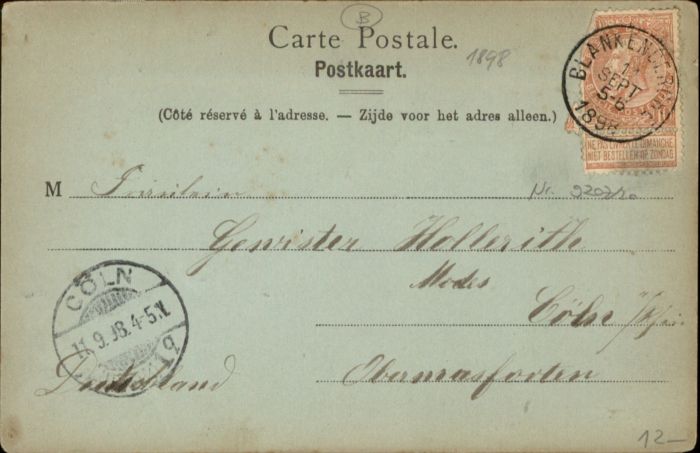 B
Carte Postale.
1898
Postkaart.
(Côté réservé à l'adresse. — Zijde voor het adres alleen.)
BLANKENBERGHE
SEPT
5-6
1898
NE PAS LIVRER LE DIMANCHE
NIET BESTELLEN OP ZONDAG
M Fräulein
Nr.
Gewister Hollerith
Modes
Cöln
CÖLN
11.9.98.4-5.N.
Deutschland
Obermarspforten
12—